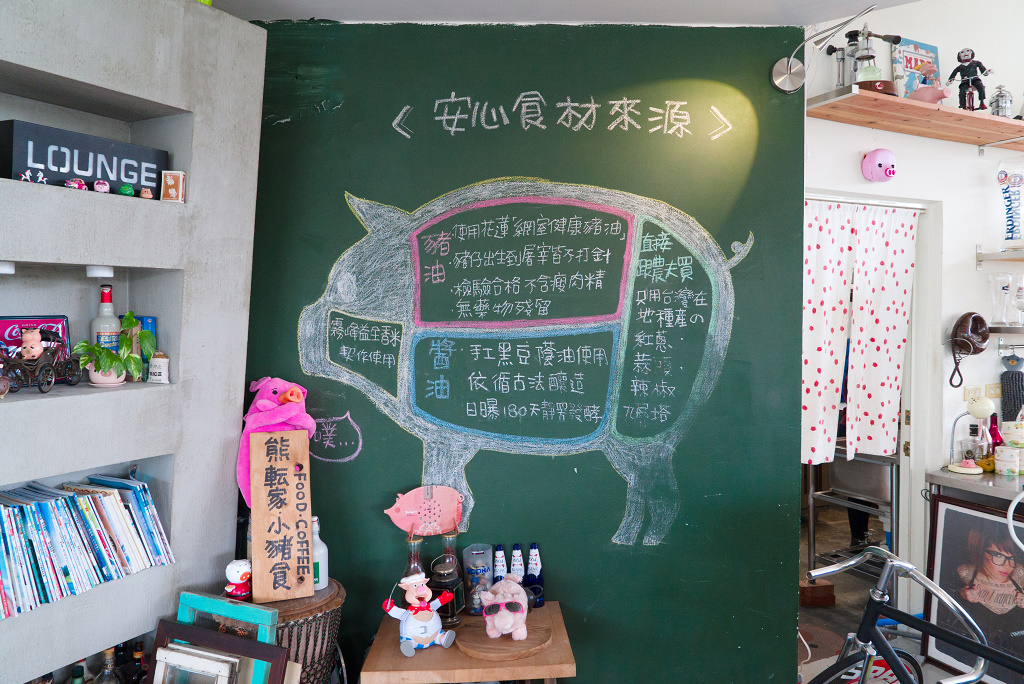 〈安心食材來源〉
豬油
·使用花蓮「網室健康豬油」
·豬仔出生到屠宰皆不打針
·檢驗合格不含瘦肉精
無藥物殘留
直接
跟農夫買
只用台灣在
地種產の
紅蔥、
蒜頭、
辣椒
九層塔
霧峰益全香米
契作使用
醬油
·手工黑豆蔭油使用
依循古法釀造
日曝180天靜置發酵
噗...
熊転家·小豬食
·FOOD·COFFEE·
LOUNGE
ERDINGER